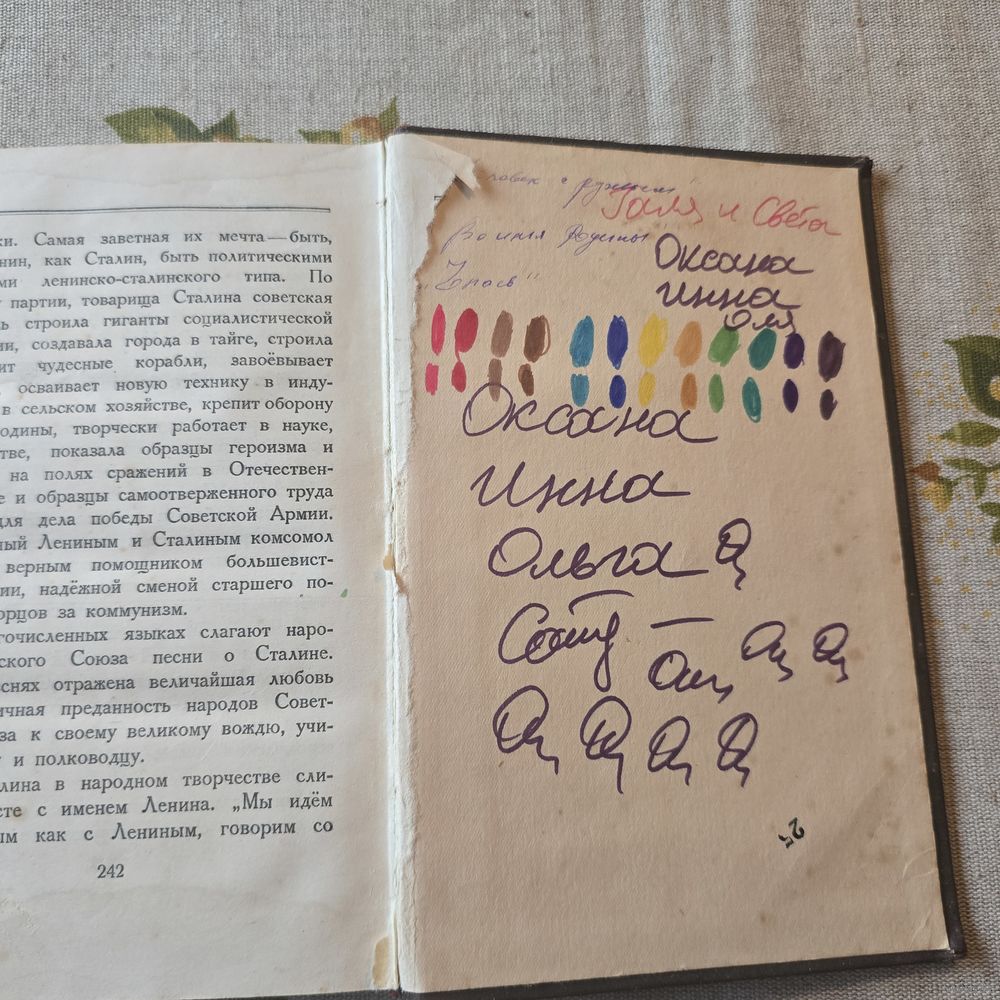 ки. Самая заветная их мечта—быть,
нин, как Сталин, быть политическими
ми ленинско-сталинского типа. По
у партии, товарища Сталина советская
ь строила гиганты социалистической
ии, создавала города в тайге, строила
ит чудесные корабли, завоёвывает
осваивает новую технику в инду-
в сельском хозяйстве, крепит оборону
одины, творчески работает в науке,
стве, показала образцы героизма и
на полях сражений в Отечествен-
е и образцы самоотверженного труда
для дела победы Советской Армии.
ный Лениным и Сталиным комсомол
верным помощником большевист-
ии, надёжной сменой старшего по-
орцов за коммунизм.
гочисленных языках слагают наро-
ского Союза песни о Сталине.
еснях отражена величайшая любовь
ичная преданность народов Совет-
за к своему великому вождю, учи-
у и полководцу.
алина в народном творчестве сли-
сте с именем Ленина. „Мы идём
ым как с Лениным, говорим со
242
ловек с ружьем"
Галя и Света
Во имя Родины"
Оксана
Инна
Оля
Оксана
Инна
Ольга
25